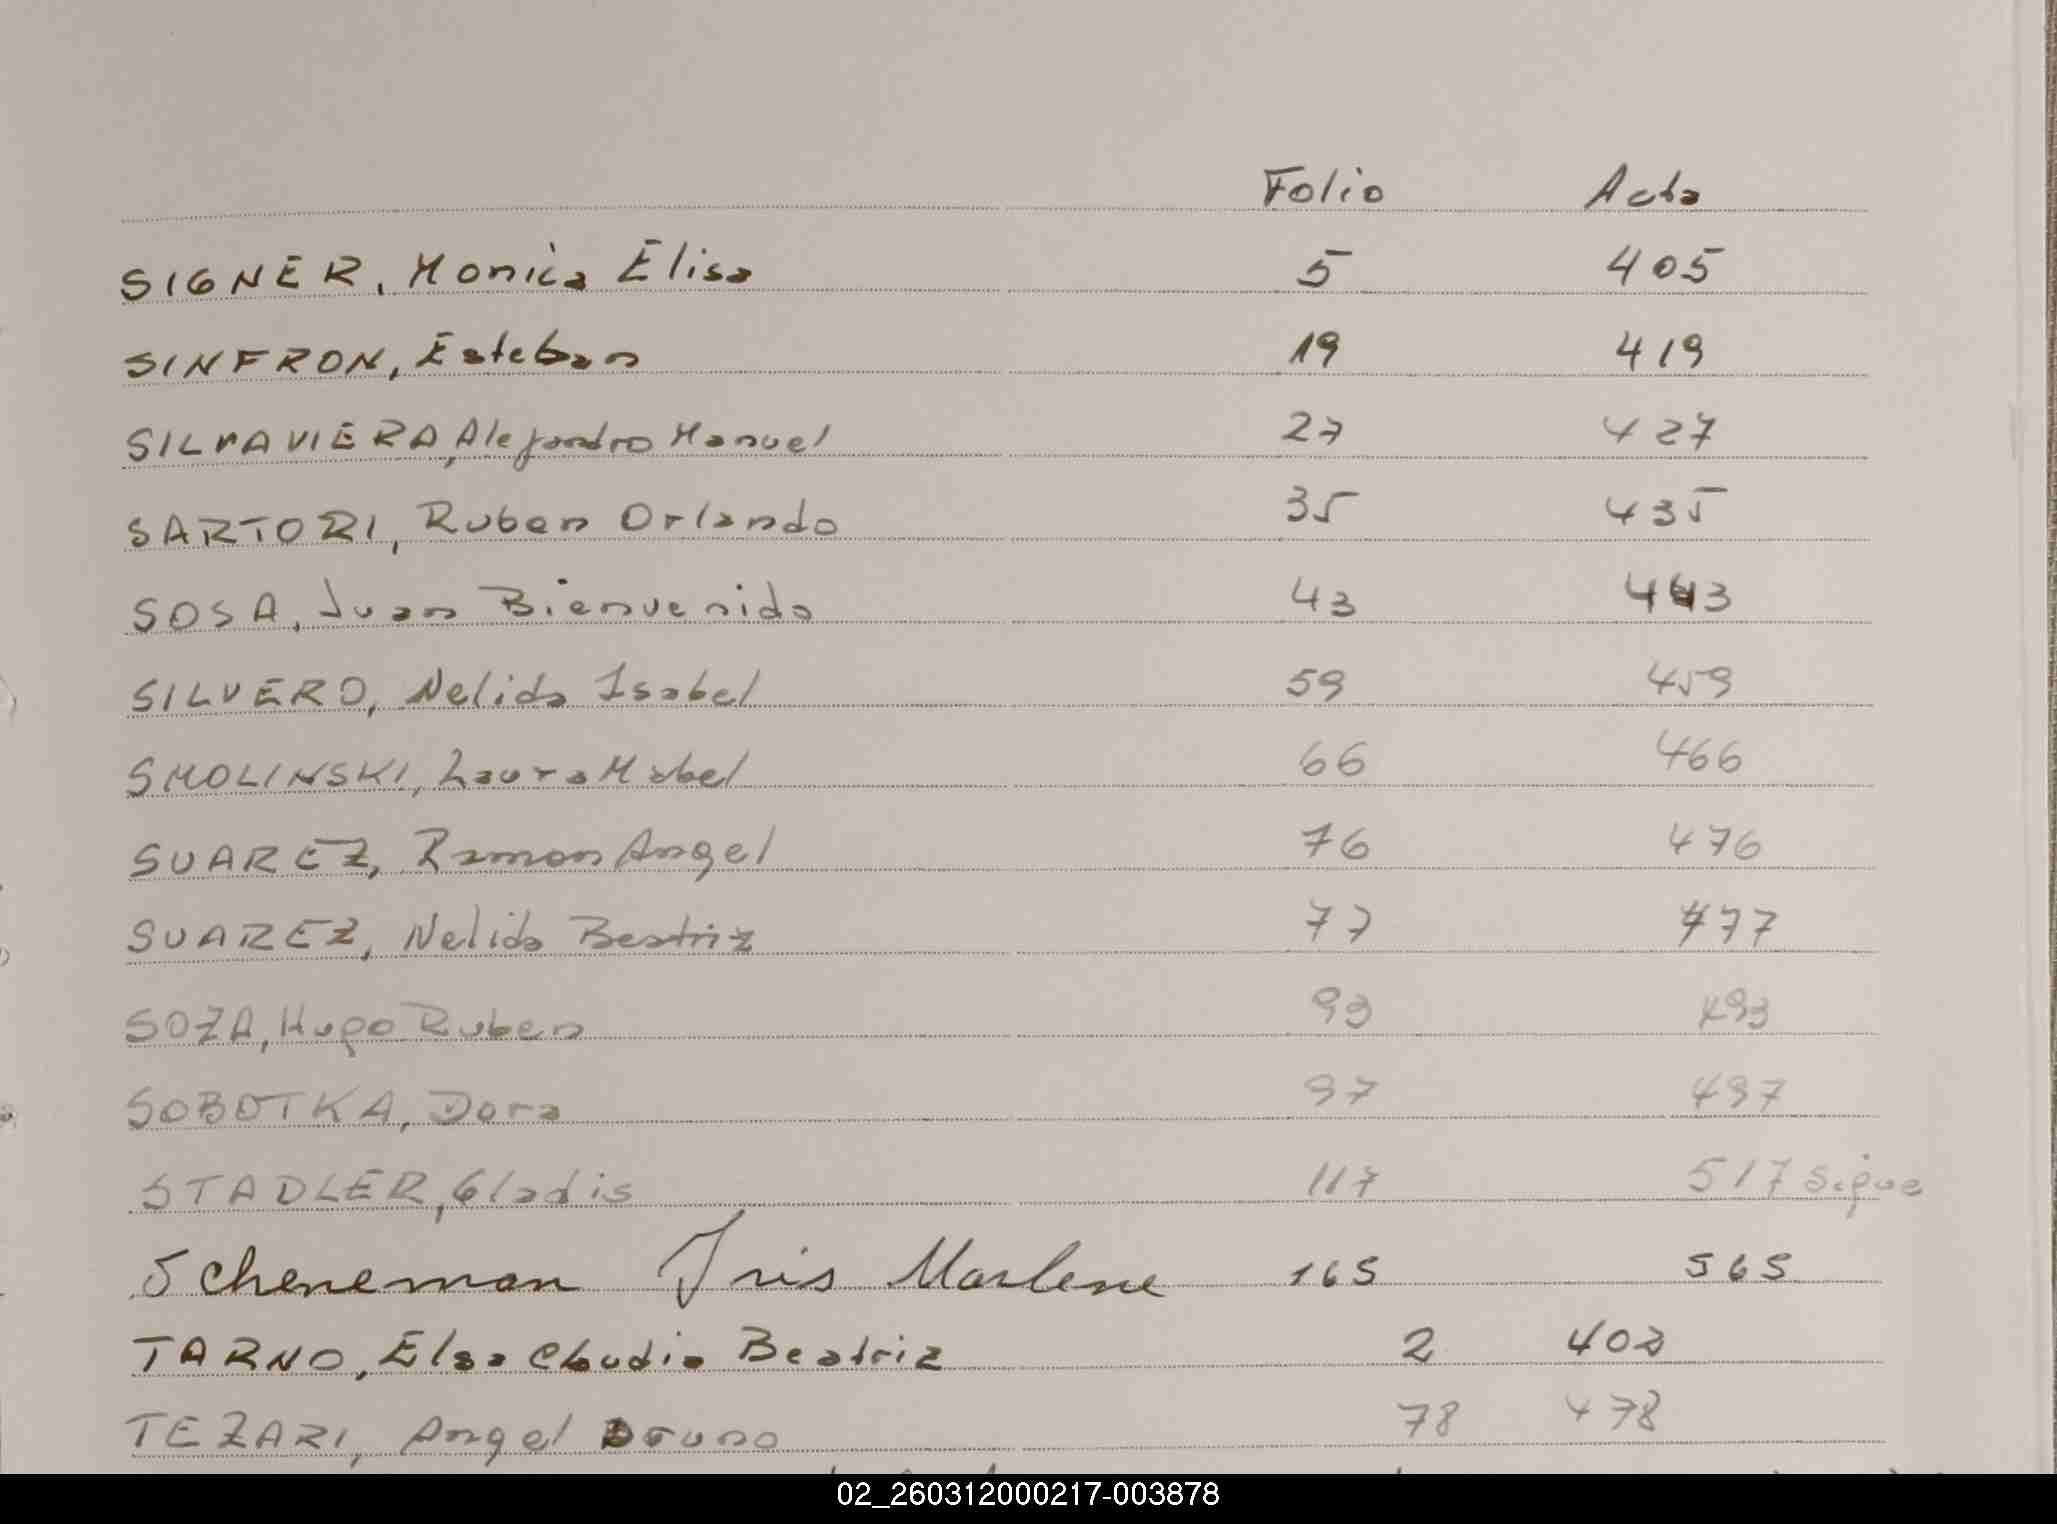 Folio Acta
SIGNER, Monica Elisa 5 405
SINFRON, Esteban 19 419
SILVAVIERA, Alejandro Manuel 27 427
SARTORI, Ruben Orlando 35 435
SOSA, Juan Bienvenido 43 443
SILVERO, Nelida Isabel 59 459
SMOLINSKI, Laura Mabel 66 466
SUAREZ, Ramon Angel 76 476
SUAREZ, Nelida Beatriz 77 477
SOZA, Hugo Ruben 93 493
SOBOTKA, Dora 97 497
STADLER, Gladis 117 517 sigue
Scheneman Iris Marlene 165 565
TARNO, Elsa Claudia Beatriz 2 402
TEZARI, Angel Bruno 78 478
02_260312000217-003878